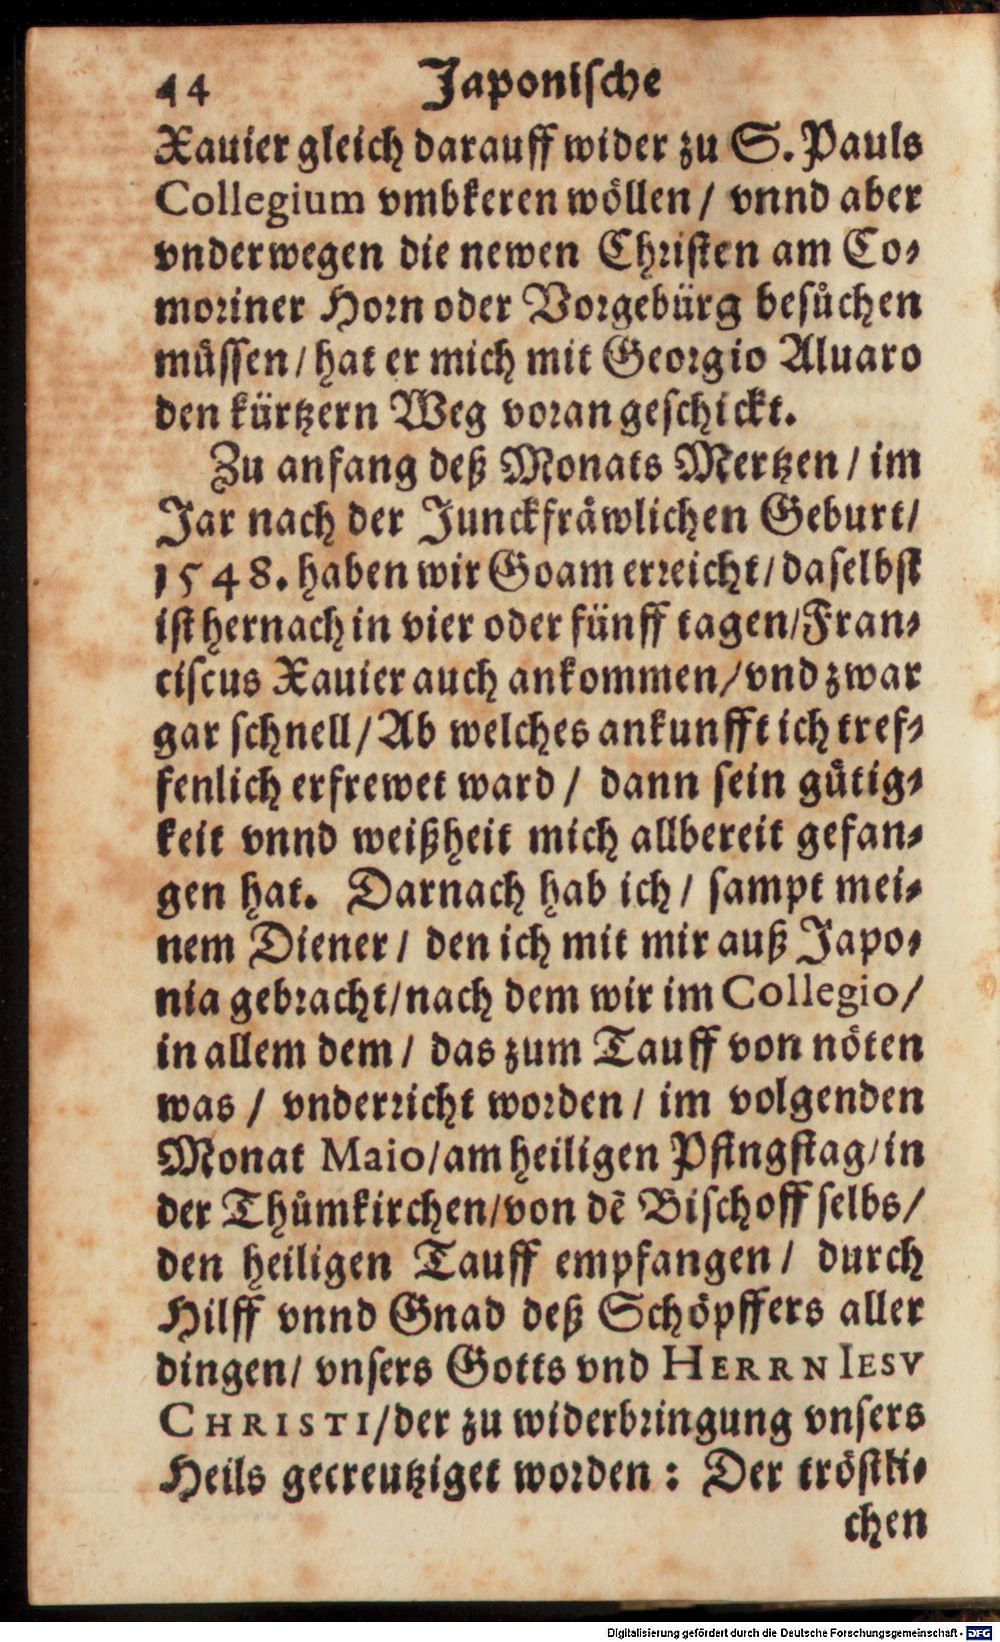 44 Japonische
Xauier gleich darauff wider zu S. Pauls
Collegium vmbkeren wöllen / vnnd aber
vnderwegen die newen Christen am Co⸗
moriner Horn oder Vorgebürg besůchen
müssen / hat er mich mit Georgio Aluaro
den kürtzern Weg voran geschickt.
Zu anfang deß Monats Mertzen / im
Jar nach der Junckfräwlichen Geburt /
1548. haben wir Goam erreicht / daselbst
ist hernach in vier oder fünff tagen / Fran⸗
ciscus Xauier auch ankommen / vnd zwar
gar schnell / Ab welches ankunfft ich tref⸗
fenlich erfrewet ward / dann sein gütig⸗
keit vnnd weißheit mich allbereit gefan⸗
gen hat. Darnach hab ich / sampt mei⸗
nem Diener / den ich mit mir auß Japo⸗
nia gebracht / nach dem wir im Collegio /
in allem dem / das zum Tauff von nöten
was / vnderricht worden / im volgenden
Monat Maio / am heiligen Pfingstag / in
der Thůmkirchen / von dẽ Bischoff selbs /
den heiligen Tauff empfangen / durch
Hilff vnnd Gnad deß Schöpffers aller
dingen / vnsers Gotts vnd HERRN IESV
CHRISTI / der zu widerbringung vnsers
Heils gecreutziget worden : Der tröstli⸗
chen
Digitalisierung gefördert durch die Deutsche Forschungsgemeinschaft - DFG